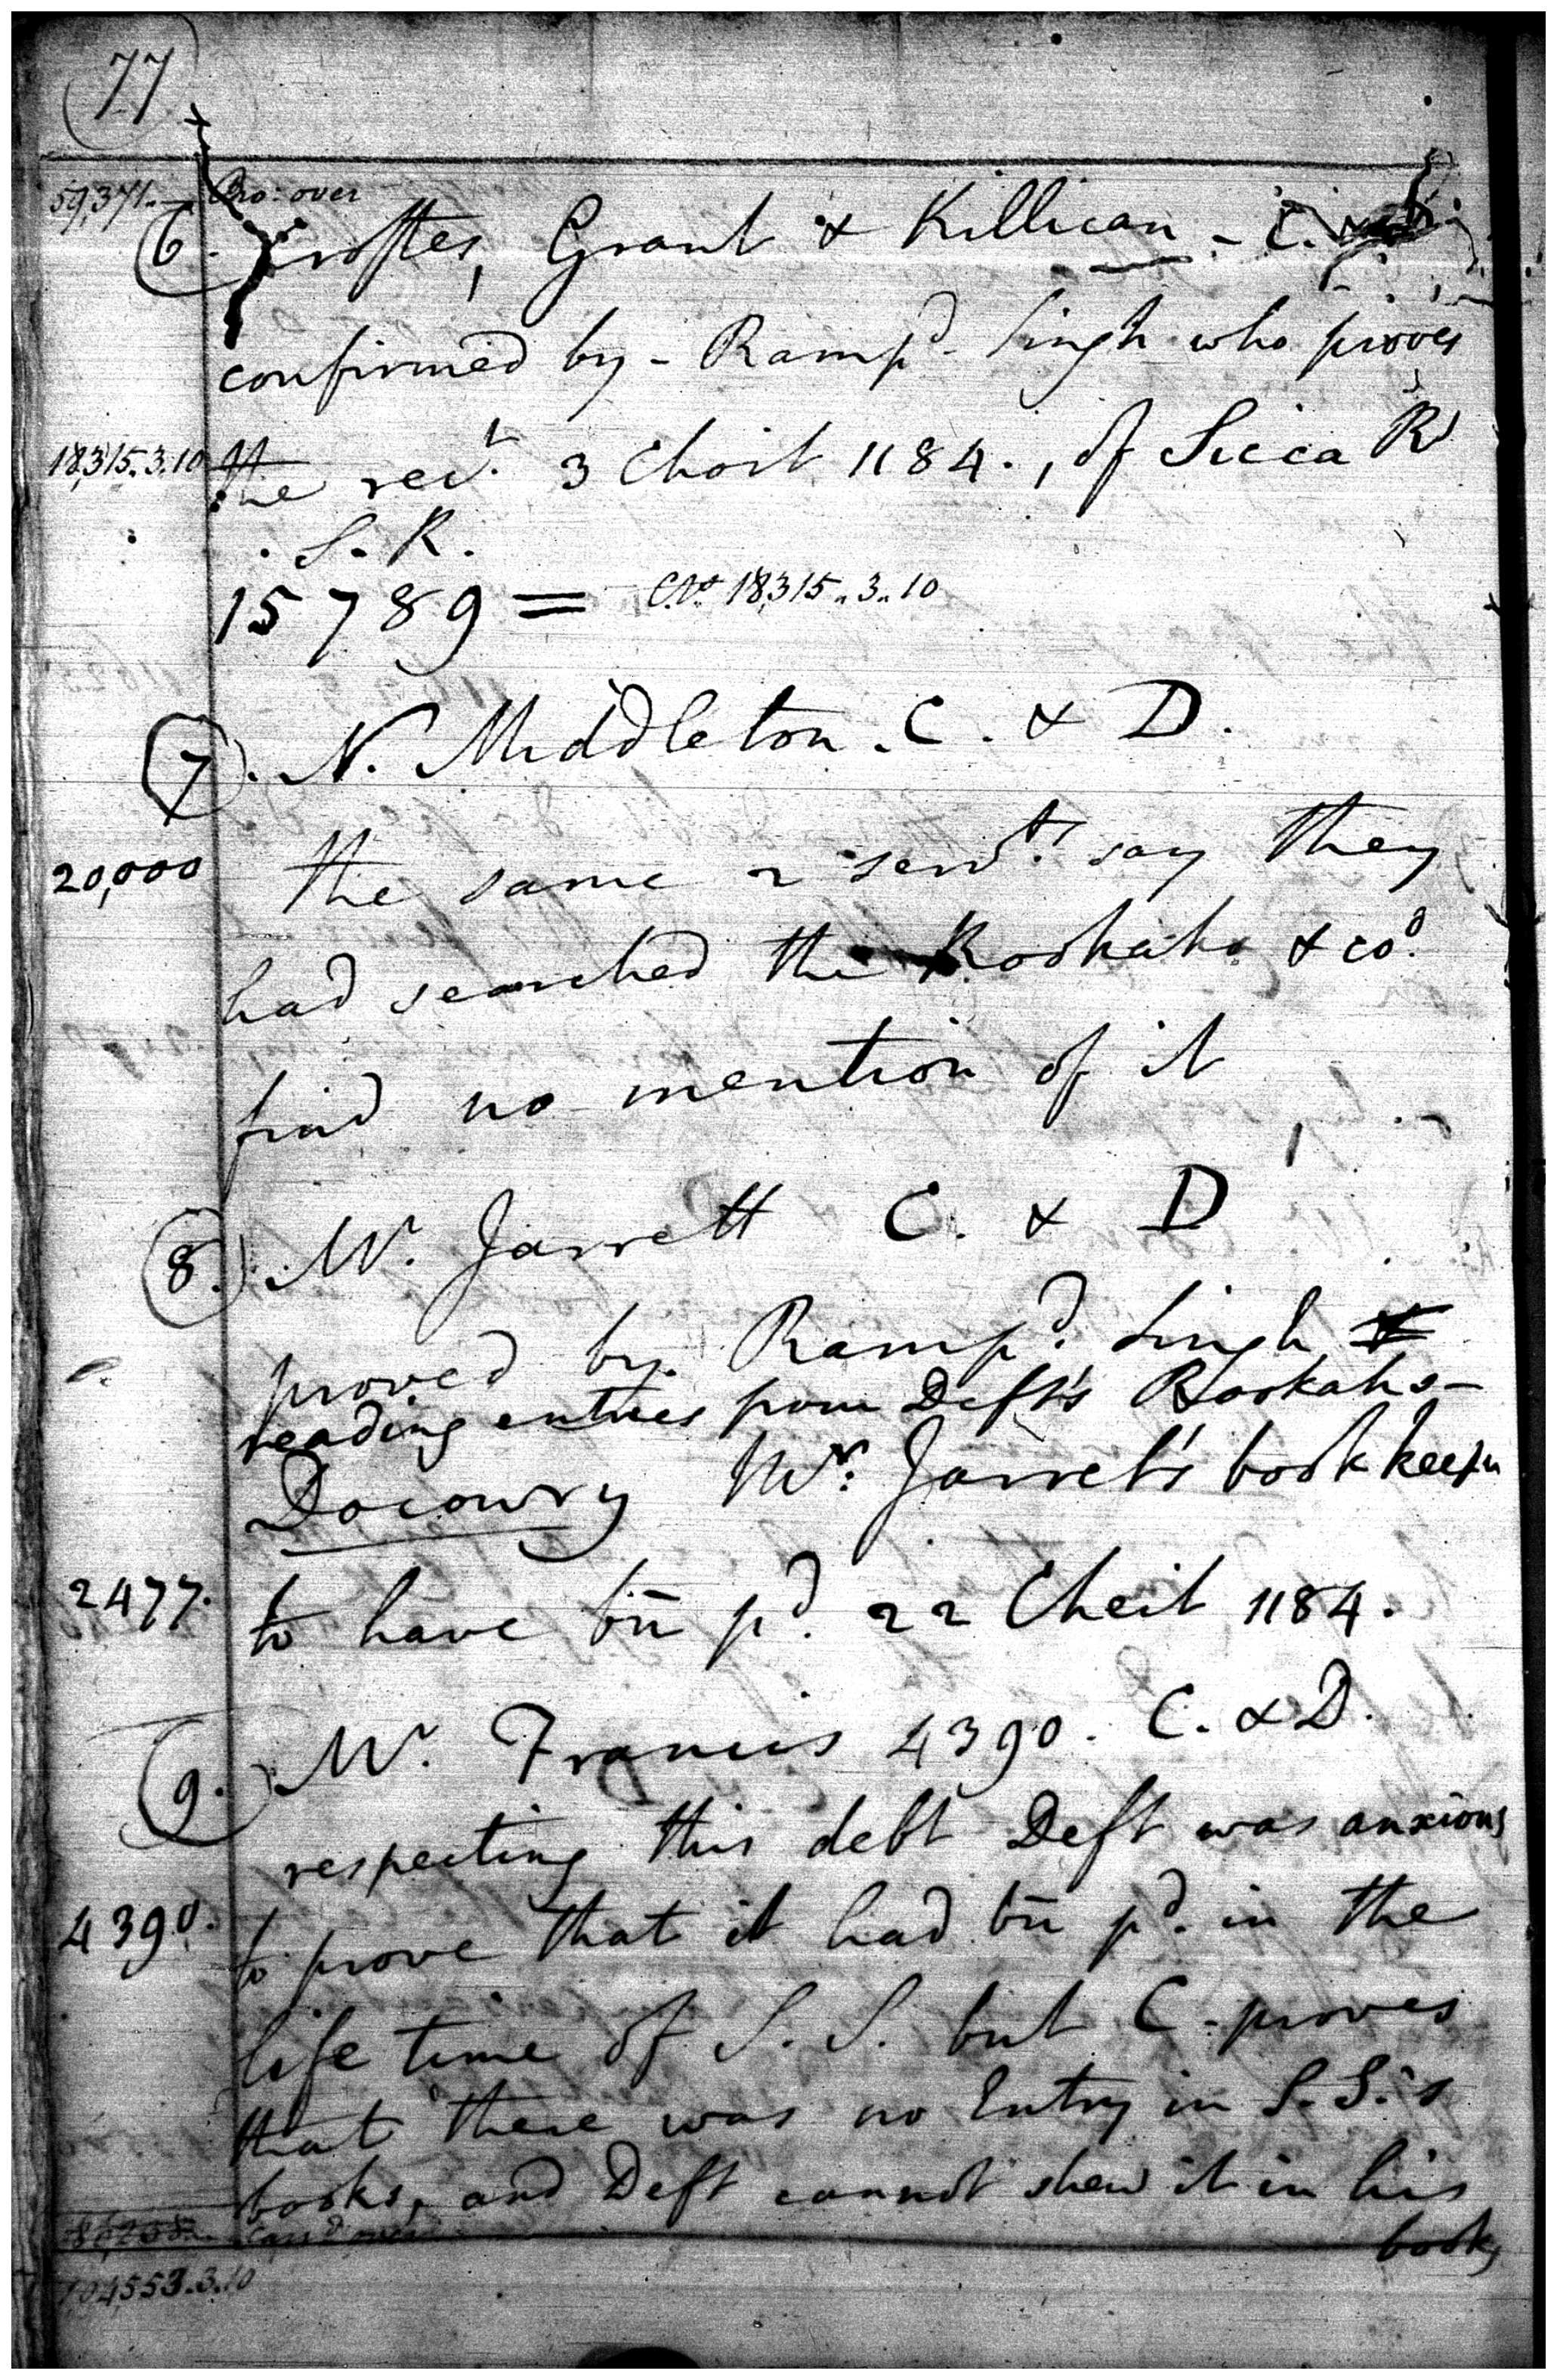 77
59,371.. Bro: over
6. Croftes, Grant & Killican - C.
confirmed by - Ramp.d Singh who proves
18,315.3.10 the rec.t 3 Choit 1184., of Sicca Rs
S. R.
15789 = C.Rs 18,315..3..10
7. N. Middleton. C. & D.
20,000 the same 2 serv.ts say they
had searched the Rookahs & co.d
find no mention of it
8. Mr. Jarrett C. & D
proved by Ramp.d Singh &
reading entries from Deft's Rookahs -
Docowry Mr: Jarret's book keeper
2477. to have bn̄ p.d 22 Cheit 1184.
9. Mr. Francis 4390. C. & D.
respecting this debt Deft was anxious
4390. to prove that it had bn̄ p.d in the
life time of S. S. but C. proves
that there was no Entry in S. S.'s
books, and Deft cannot shew it in his
Carr.d over
books
104553.3.10